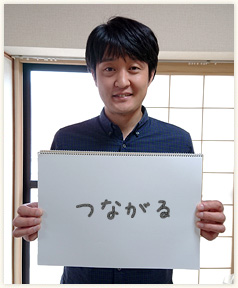 つながる